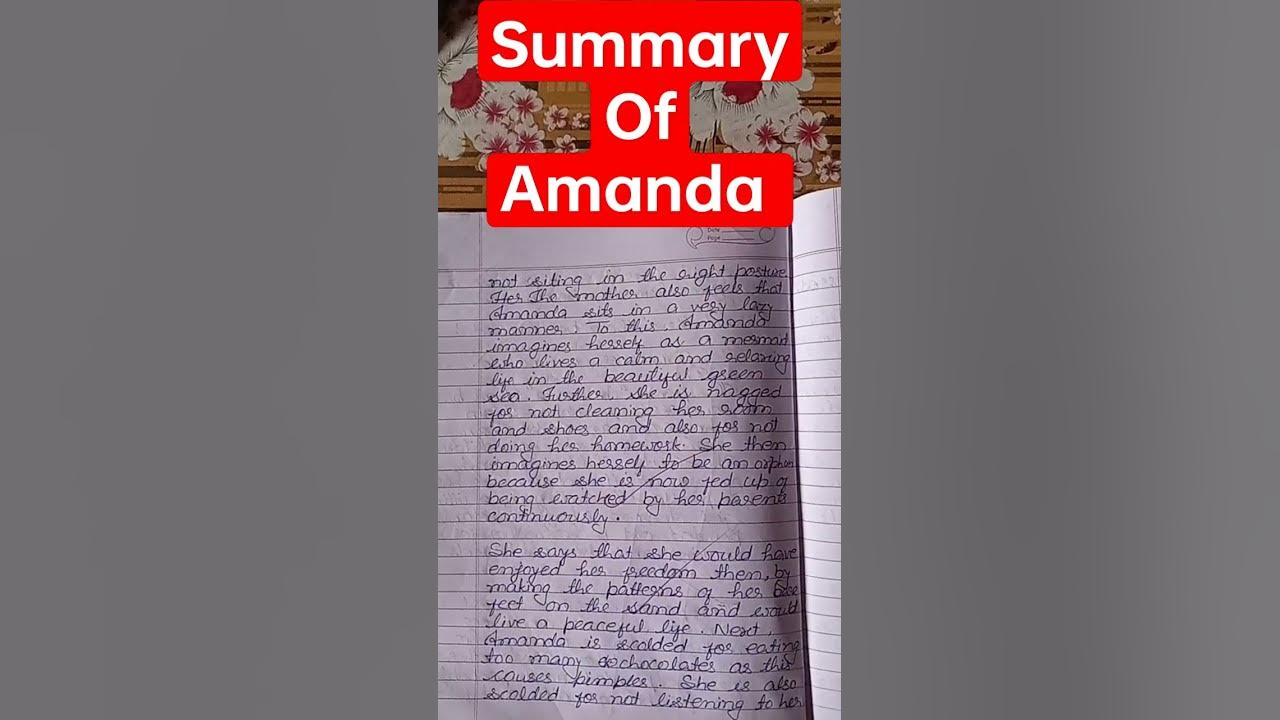 Summary
Of
Amanda
Date
Page
not siting in the right posture
Her The mother also feels that
Amanda sits in a very lazy
manner. To this, Amanda
imagines herself as a mermaid
who lives a calm and relaxing
life in the beautiful green
sea. Further, she is nagged
for not cleaning her room
and shoes and also for not
doing her homework. She then
imagines herself to be an orphan
because she is now fed up of
being watched by her parents
continuously.
She says that she would have
enjoyed her freedom then, by
making the patterns of her bare
feet on the sand and would
live a peaceful life. Next,
Amanda is scolded for eating
too many chocolates as this
causes pimples. She is also
scolded for not listening to her